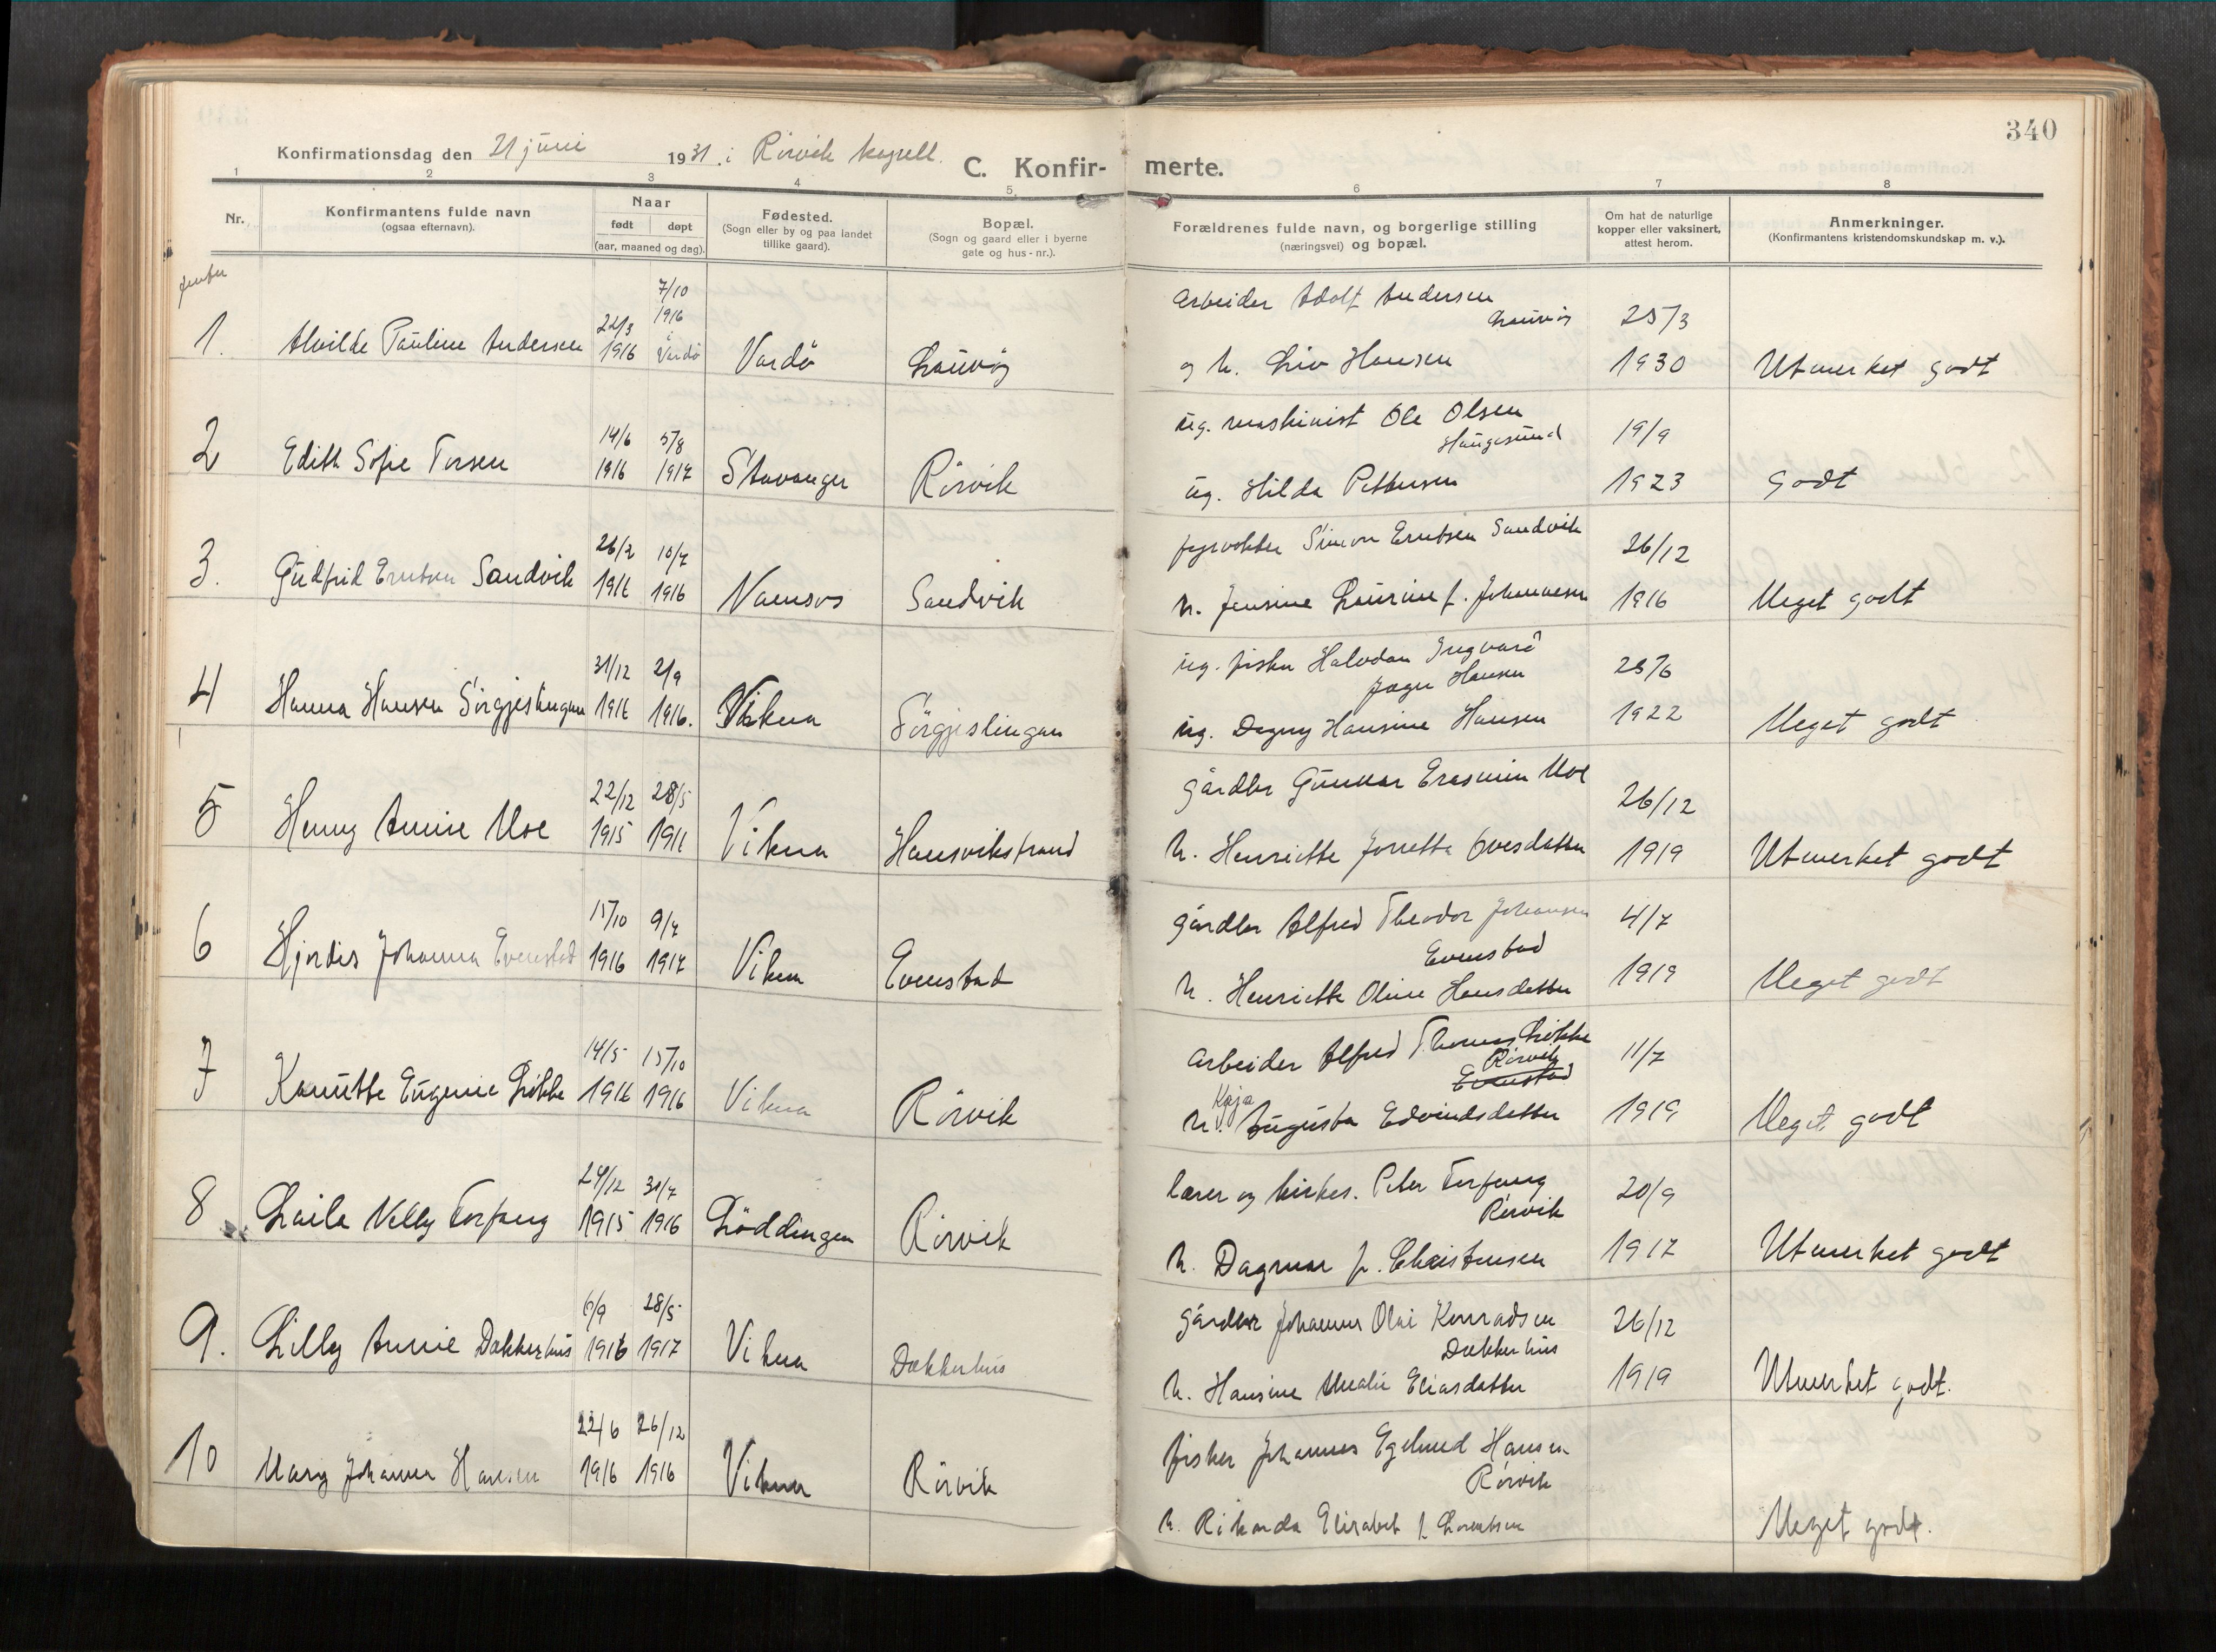 340
Konfirmationsdag den 21 juni 1931. i Rörvik kapell.
C. Konfir- merte.
1 2 3 4 5 6 7 8
Nr.
Konfirmantens fulde navn
(ogsaa efternavn).
Naar
født døpt
(aar, maaned og dag).
Fødested.
(Sogn eller by og paa landet
tillike gaard).
Bopæl.
(Sogn og gaard eller i byerne
gate og hus-nr.).
Forældrenes fulde navn, og borgerlige stilling
(næringsvei) og bopæl.
Om hat de naturlige
kopper eller vaksinert,
attest herom.
Anmerkninger.
(Konfirmantens kristendomskundskap m. v.).
jenter
7/10
22/3 1916 Arbeider Adolf Andersen
Lauvöy 25/3
1. Alvilde Pauline Andersen 1916 Vardö Vardö Lauvöy og h. Liv Hansen 1930 Utmerket godt
14/6 5/8 ug. maskinist Ole Olsen
Haugesund 19/9
2 Edith Sofie Torsen 1916 1917 Stavanger Rörvik ug. Hilda Pettersen 1923 Godt
26/2 10/7 fyrvokter Simon Erntsen Sandvik 26/12
3. Gudfrid Erntsen Sandvik 1916 1916 Namsos Sandvik h. Jensine Laurine f. Johannesen 1916 Meget godt
31/12 21/9 ug. fisker Halvdan Ingvard
Jæger Hansen 28/6
4 Hanna Hansen Sörgjeslingan 1916 1916. Vikna Sörgjeslingan ug. Dagny Hansine Hansen 1922 Meget godt
22/12 28/5 Gårdbr Gunnar Erasmin Moe 26/12
5 Henny Annie Moe 1915 1916 Vikna Hansvikstrand h. Henriette Jonetta Ovesdatter 1919 Utmerket godt
15/10 9/4 Gårdbr Alfred Theodor Johansen
Evenstad 4/7
6 Hjordis Johanna Evenstad 1916 1917 Vikna Evenstad h. Henriette Oline Hansdatter 1919 Meget godt
14/5 15/10 Arbeider Alfred Thomas Lökke
Rörvik
Evenstad 11/7
7 Kanutte Eugenie Lökke 1916 1916 Vikna Rörvik h. Kaja Augusta Edvindsdatter 1919 Meget godt
24/12 31/7 lærer og kirkes. Peter Torfang
Rörvik 20/9
8 Laila Nelly Torfang 1915 1916 Löddingen Rörvik h. Dagmar f. Christensen 1917 Utmerket godt
6/9 28/5 Gårdbr Johannes Olai Konradsen
Dakkerhus 26/12
9. Lilly Annie Dakkerhus 1916 1917 Vikna Dakkerhus h. Hansine Amalie Eliasdatter 1919 Utmerket godt.
22/6 26/12 fisker Johannes Egelund Hansen
Rörvik
10 Mary Johanna Hansen 1916 1916 Vikna Rörvik h. Rikarda Elisabet f. Lorentsen Meget godt.